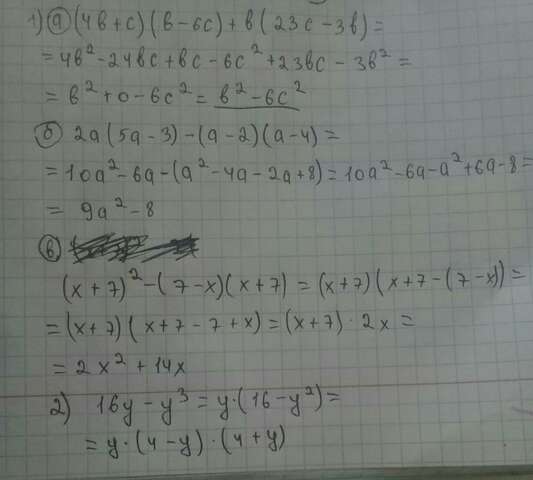 1) а) (4в+с)(в-6с)+в(23с-3в)=
=4в²-24вс+вс-6с²+23вс-3в²=
=в²+0-6с²=в²-6с²
б) 2а(5а-3)-(а-2)(а-4)=
=10а²-6а-(а²-4а-2а+8)=10а²-6а-а²+6а-8=
= 9а²-8
в)
(х+7)²-(7-х)(х+7)=(х+7)(х+7-(7-х))=
=(х+7)(х+7-7+х)=(х+7)·2х=
=2х²+14х
2) 16у-у³=у·(16-у²)=
=у·(4-у)·(4+у)